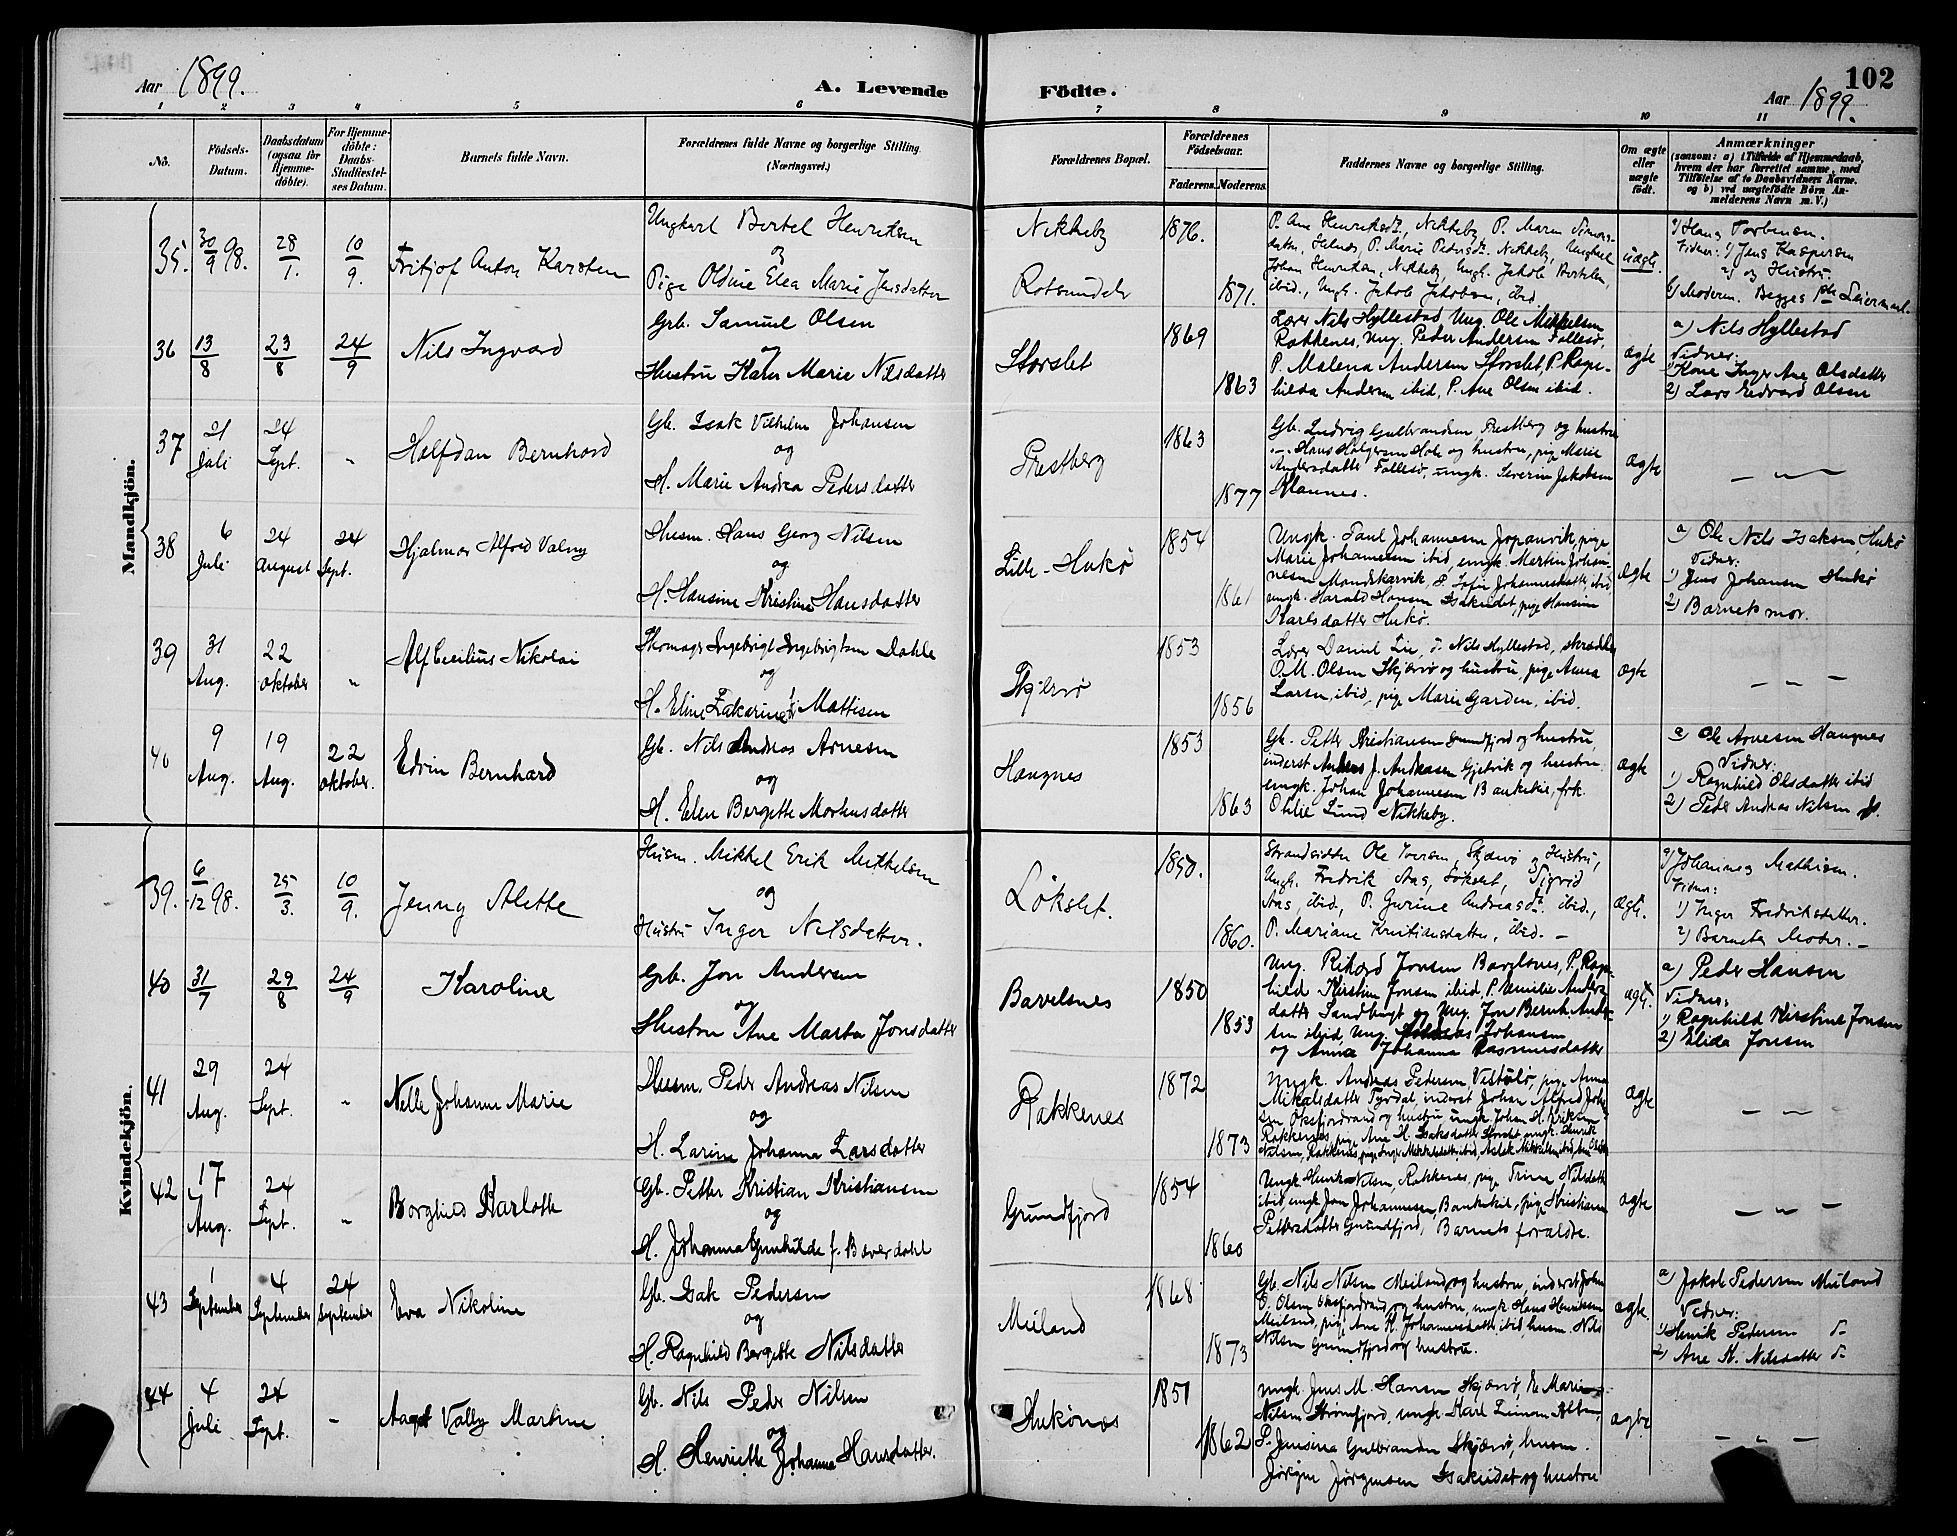 102
Aar 1899.
A. Levende
Födte.
Aar 1899.
1 2 3 4 5 6 7 8 9 10 11
No.
Födsels-
Datum.
Daabsdatum
(ogsaa for
Hjemme-
döbte).
For Hjemme-
döbte:
Daabs-
Stadfæstel-
ses Datum.
Barnets fulde Navn.
Forældrenes fulde Navne og borgerlige Stilling
(Næringsvei.)
Forældrenes Bopæl.
Forældrenes
Födselsaar.
Faderens. Moderens.
Faddernes Navne og borgerlige Stilling.
Om ægte
eller
uægte
födt.
Anmærkninger
(saasom: a) i Tilfælde af Hjemmedaab,
hvem der har forrettet samme, med
Tilföielse af to Daabsvidners Navne.
og b) ved uægtefödte Börn An-
melderens Navn m. V.)
Mandkjön.
35. 30/9 98. 28/1. 10/9. Fritjof Anton Karsten
Ungkarl Bertel Henriksen
og
Pige Oldine Elea Marie Jensdatter
Nikkeby 1876.
Rotsundelv 1871.
P. Ane Henriksdt., Nikkeby, P. Maren Simons-
datter, P. Marie Pedersdt. Nikkeby, Ungkarl
Johan Henriksen, Nikkeby, Ungk. Jakob Bertelsen,
ibid., Ungk. Jakob Jakobsen, ibid.
uægte.
Hans Torbensen.
Vidner: 1) Jens Kaspersen
2) og Hustru.
b) Moderen. Begges 1ste Leiermaal.
36 13/8 23/8 24/9 Nils Ingvard
Grb. Samuel Olsen
og
Hustru Karen Marie Nilsdatter
Storslet 1869
1863
Lærer Nils Hyllestad Ung. Ole Mikkelsen
Rakkenes, Ung. Peder Andersen Follesø,
P. Malena Andersen Storslet, P. Ragn-
hilda Andersen ibid, P. Ane Olsen ibid.
ægte
a) Nils Hyllestad
Vidner:
1) Kone Inger Ane Olsdatter
2) Lars Edvard Olsen
37 21 Juli 24 Sept. „ Halfdan Bernhard
Gb. Isak Vilhelm Johansen
og
H. Marie Andrea Pedersdatter
Prestberg 1863
1877
Gb. Ludvig Gulbrandsen Prestberg og hustru
Hans Holgersen Hole og hustru, pige Marie
Andersdatter Follesø, ungk. Severin Jakobsen
ægte
— „ —
38 6 Juli 24 August 24 Sept. Hjalmar Alfred Valny
Husm. Hans Georg Nilsen
og
H. Hansine Kristine Hansdatter
Lille-Hukø 1854
1861
Ungk. Paul Johannesen pige
Marie Johannesen ibid, ungk. Martin Johan-
nesen Mandskarvik, P. Sofie Johannesdatter, ibid
ungk. Harald Hansen Isakeidet, pige Hansine
Karlsdatter Hukø.
ægte
a) Ole Nils Isaksen, Hukø
Vidner:
1) Jens Johansen Hukø
2) Barnets mor.
39 31 Aug. 22 oktober „ Alf Cecilius Nikolai
Skomagr Ingebrigt Ingebrigtsen Dahle
og
H. Eline Zakarine f. Mattisen
Skjervø 1853
1856
Lærer Daniel Lie, d. Nils Hyllestad, skrædder
O.M. Olsen Skjærvø og hustru, pige Anna
Larsen, ibid, pige Marie Garden, ibid.
ægte
— — —
40 9 Aug. 19 Aug. 22 oktober. Edvin Bernhard
Gb. Nils Andreas Arnesen
og
H. Elen Bergitte Mortensdatter
Haugnes 1853
1863
Gb. Petter Kristiansen Grundfjord og hustru,
inderst Anders J. Andreasen Gjetvik og hustru
ungk. Johan Johannesen Bankekeil, frk.
Othilie Lund Nikkeby.
ægte
a) Ole Arnesen Haugnes
Vidner:
1) Ragnhild Olsdatter ibid
2) Peder Andreas Nilsen
Kvindekjön.
39. 6/12 98. 25/3. 10/9. Jenny Alette
Husm. Mikkel Erik Mikkelsen
og
Hustru Inger Nilsdatter.
Løkslet. 1850.
1860.
Strandsidder Ole Iversen, Skjærvø og Hustru,
Ungk. Fredrik Aas, Løkslet, Sigrid
Aas, ibid, P. Gurine Andreasdt. ibid.,
P. Mariane Kristiansdatter, ibid. —
ægte.
a) Johannes Mathisen.
Vidner:
1) Inger Fredriksdatter.
2) Barnets Moder. —
40 31/7 29/8 24/9 Karoline
Grb. Jon Andersen
og
Hustru Ane Marta Jonsdatter
Bavelsnes 1850
1853
Ung. Rikard Jonsen Bavelsnes, P. Ragn-
hild Kirstine Jonsen ibid, P. Emilie Anders-
datter Sandbugt og Ung. Jon Bernh. Ander-
sen ibid, Ung. Johansen
og Anna Johanna Rasmusdatter
ægte.
a) Peder Hansen
Vidner:
1) Ragnhild Kirstine Jonsen
2) Elida Jonsen
41 29 Aug. 24 Sept. „ Nelle Johanne Marie
Husm. Peder Andreas Nilsen
og
H. Larine Johanna Larsdatter
Rakkenes 1872
1873
Ungk. Andreas Pedersen, pige Anna
Mikalsdatter inderst Johan Alfred Joh-
sen Oksfjordvand og hustru ungk. Johan H. Eriksen
Rakkenes, pige Ane H. Isaksdatter Storslet, ungk. Henrik
Nilsen, Rakkenes, pige Inger
ægte
— „ —
42 17 Aug. 24 Sept. „ Borghild Karlotte
Gb. Petter Kristian Kristiansen
og
H. Johanna Gunhilde f. Bæverdahl
Grundfjord 1854
1860
Ungk. Henrik Nilsen, Rakkenes, pige Trine Nilsdatter
ibid, ungk. Jon Johannesen, Bankekeil, pige Kristiane
Pettersdatter Grundfjord, Barnets foreldre.
ægte
— „ —
43 1 September 4 September 24 September Eva Nikoline
Gb. Isak Pedersen
og
H. Ragnhild Bergitte Nilsdatter
Meiland 1868
1873
Gb. Nils Nilsen Meiland og hustru, inderst John
O. Olsen Oksfjordvand og hustru, ungk. Hans Henriksen
Meiland, pige Ane K. Johannesdatter ibid, husm. Nils
Nilsen Grundfjord og hustru.
ægte.
a) Jakob Pedersen Meiland
Vidner:
1) Henrik Pedersen d.
2) Ane K. Nilsdatter d.
44 4 Juli 24 Sept. — Aagot Valby Martine
Gb. Nils Peder Nilsen
og
H. Henriette Johanna Hansdatter.
Hukønes 1851
1862
Ungk. Jens M. Hansen Skjærvø, Marie
Nilsen Strømfjord, ungk. Karl
P. Jensina Gulbrandsen Skjærvø, husm.
Jørgen Jørgensen Isakeidet og hustru
ægte
— „ —